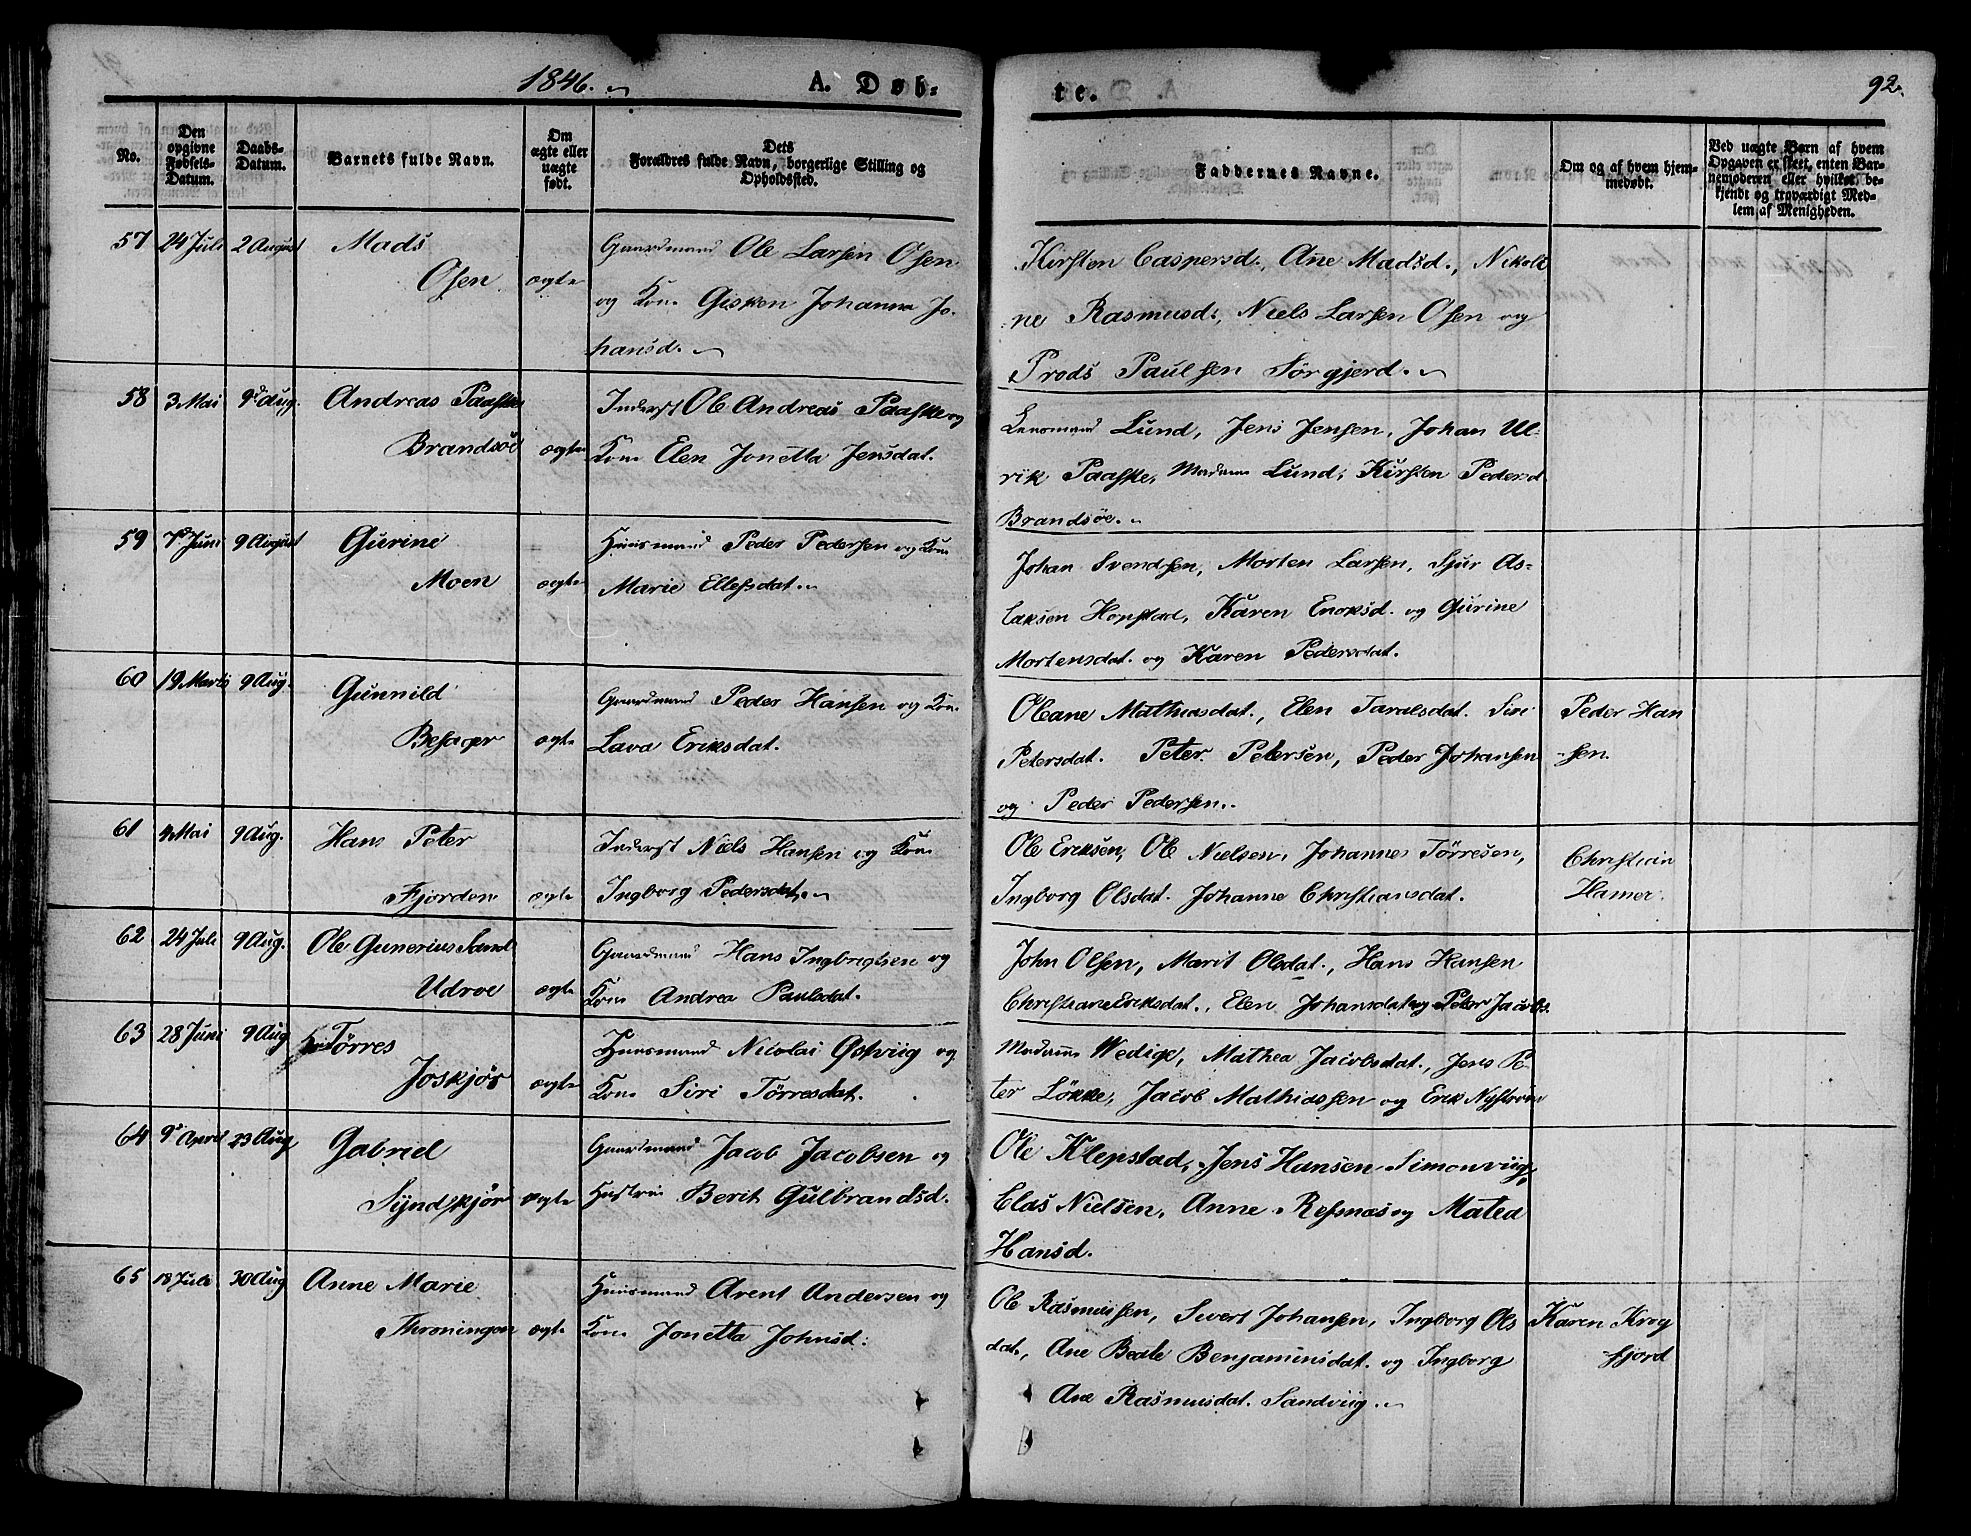 1846.
A. Døb=
te.
92.
No.
Den
opgivne
Fødsels-
Datum.
Daabs-
Datum.
Barnets fulde Navn.
Om
ægte eller
uægte
født.
Dets
Forældres fulde Navn, borgerlige Stilling og
Opholdssted.
Faddernes Navne.
Om og af hvem hjem-
medøbt.
Ved uægte Børn af hvem
Opgaven er skeet, enten Bar-
nemoderen eller hvilket be-
kjendt og troværdigt Med-
lem af Menigheden.
57 24 Juli 2 August Mads
Osen ægte
Gaardmand Ole Larsen Osen
og Kone Gisken Johanna Jo-
hansd.
Kirsten Caspersd., Ane Madsd., Nikoli
ne Rasmusd., Niels Larsen Osen og
Prods Paulsen Sørgjerd.
58 3 Mai 9de Aug. Andreas Paaske
Brandsöe ægte
Inderst Ole Andreas Paaske og
Kone Elen Jonetta Jensdat.
Lensmand Lund, Jens Jensen, Johan Ul-
rik Paaske, Madame Lund, Kirsten Pedersd
Brandsöe.
59 7de Juni 9 August Gurine
Moen ægte
Huusmand Peder Pedersen og Kone
Marie Ellefsdat.
Johan Svendsen, Morten Larsen, Sjur As-
laksen Hopstad, Karen Enoksd. og Gurine
Mortensdat. og Karen Pedersdat.
60 19 Marts 9 Aug. Gunnild
Besager ægte
Gaardmand Peder Hansen og Kone
Lava Eriksdat.
Oleane Mathiasdat., Elen Taralsdat. Siri
Petersdat. Peter Petersen, Peder Johansen
og Peder Pedersen.
Peder Han
-sen.
61 4 Mai 9 Aug. Hans Peter
Fjorden ægte
Inderst Niels Hansen og Kone
Ingborg Pedersdat.
Ole Eriksen, Ole Nielsen, Johannes Törresen,
Ingborg Olsdat. Johanne Christiansdat.
Christian
Hamer.
62 24 Juli 9 Aug. Ole Gunerius Sand
Udroe ægte
Gaardmand Hans Ingbrigtsen og
Kone Andrea Paulsdat.
John Olsen, Marit Olsdat., Hans Hansen
Christiane Eriksdat., Elen Johansdat og Peter Jacobs.
63 28 Juni 9 Aug Törres
Joskjör ægte
Huusmand Nicolai Ostviig og
Kone Siri Törresdat.
Madame Wedige, Mathea Jacobsdat., Jens Pe
ter Lökke, Jacob Mathiassen og Erik Nyström
64 9de April 23 Aug Gabriel
Syndskjör ægte
Gaardmand Jacob Jacobsen og
Hustrue Berit Gulbrandsd.
Ole Klepstad, Jens Hansen Simonviig,
Clas Nielsen, Anne Refsnæs og Matea
Hansd.
65 18 Juli 30 Aug Anne Marie
Throningen ægte
Huusmand Arent Andersen og
Kone Jonetta Johnsd.
Ole Rasmussen, Sivert Johansen, Ingborg Ols
dat., Ane Beate Benjaminsdat. og Ingborg
Ane Rasmusdat. Sandviig.
Karen Krog
fjord